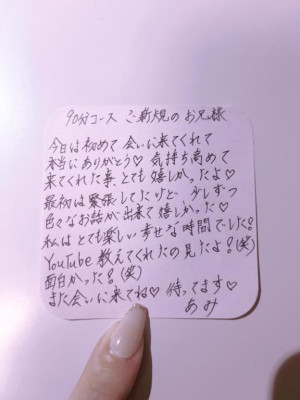 90分コース ご新規のお兄様
今日は初めて会いに来てくれて
本当にありがとう♡ 気持ち高めて
来てくれた事、とても嬉しかったよ♡
最初は緊張してたけど、少しずつ
色々なお話が出来て嬉しかった♡
私はとても楽しい幸せな時間でした!
YouTube教えてくれたの見たよ!(笑)
面白かった!(笑)
また会いに来てね♡ 待ってます♡
あみ